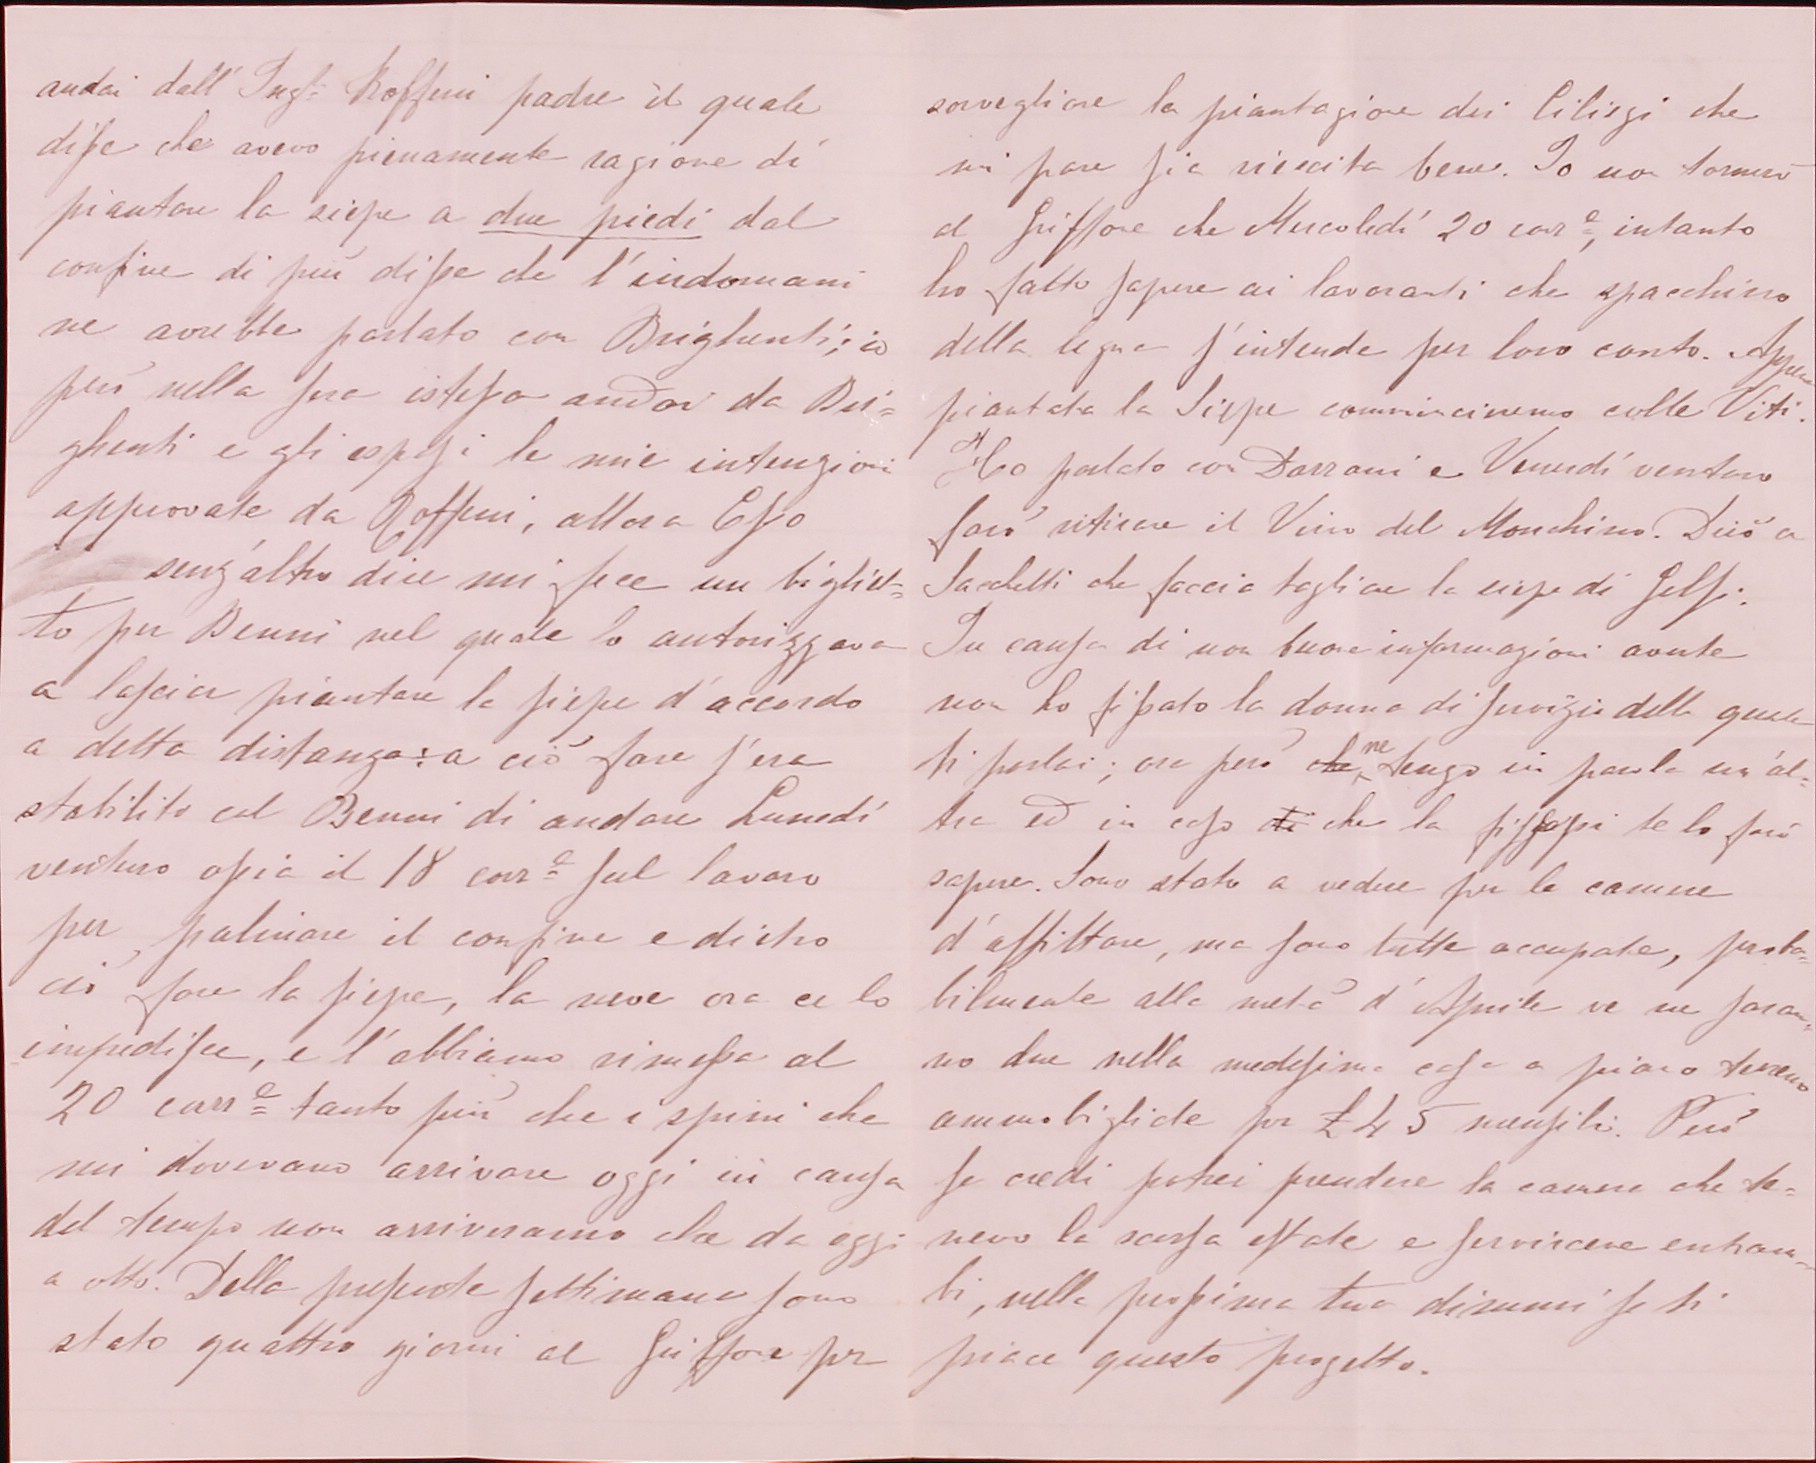 andai dall' Ing.e Roffeni padre il quale
disse che avevo pienamente ragione di
piantare la siepe a due piedi dal
confine di più disse che l'indomani
ne avrebbe parlato con Brighenti; io
però nella sera istessa andai da Bri=
ghenti e gli espressi le mie intenzioni
approvate da Roffeni, allora Esso
senz'altro dire mi fece un bigliet=
to per Benni nel quale lo autorizzava
a lasciar piantare la siepe d'accordo
a detta distanza: a ciò fare s'era
stabilito col Benni di andare Lunedí
venturo ossia il 18 corr.e sul lavoro
per palinare il confine e dietro
ciò fare la siepe, la neve ora ce lo
impedisce, e l'abbiamo rimessa al
20 corr.e tanto più che i spini che
mi dovevano arrivare oggi in causa
del tempo non arriveranno che da oggi
a otto. Della presente settimana sono
stato quattro giorni al Griffone per
sorvegliare la piantagione dei Ciliegi che
mi pare sia riescita bene. Io non tornerò
al Griffone che Mercoledí 20 corr.e, intanto
ho fatto sapere ai lavoranti che spacchino
della legna s'intende per loro conto. Appena
piantata la Siepe comincieremo colle Viti.
Ho parlato con Dazzani e Venerdí venturo
farò ritirare il Vino del Monchino. Dirò a
Sacchetti che faccia tagliare la siepe di Gessi.
In causa di non buone informazioni avute
non ho fissato la donna di servizio della quale
ti parlai; ora però che ne tengo in parola un'al=
tra ed in caso di che la fissassi te lo farò
sapere. Sono stato a vedere per le camere
d'affittare, ma sono tutte occupate, proba=
bilmente alla metà d'Aprile ve ne saran=
no due nella medesima casa a piano terreno
ammobigliate per £ 45 mensili. Però
se credi potrei prendere la camera che te=
nevo la scorsa estate e servircene entram=
bi, nella prossima tua dimmi se ti
piace questo progetto.